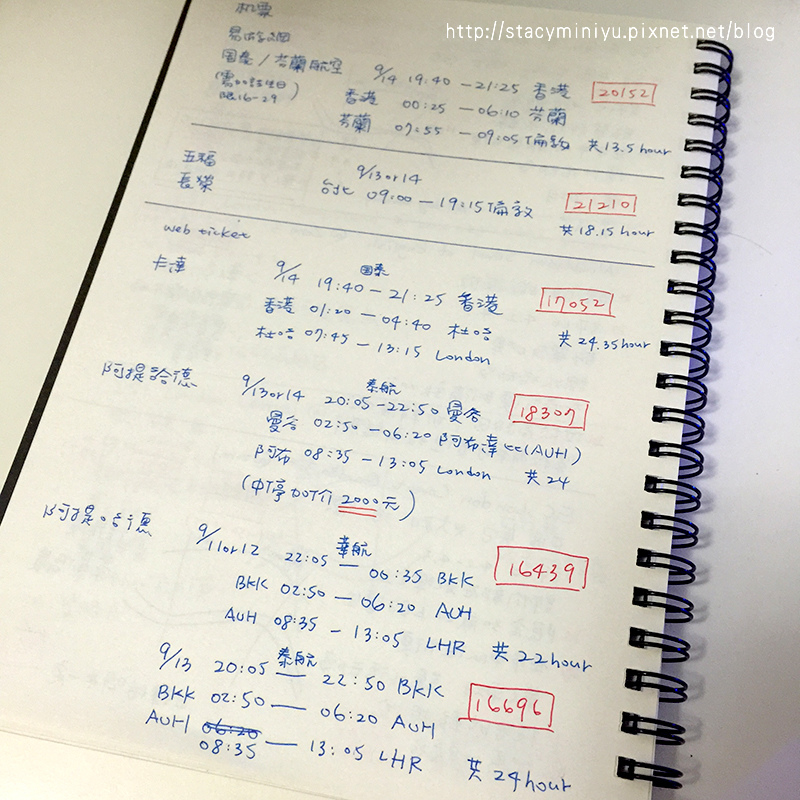 http://stacyminiyu.pixnet.net/blog
机票
易遊網
国泰/芬蘭航空 9/14 19:40 — 21:25 香港 20152
限16-29) 香港 00:25 — 06:10 芬蘭
芬蘭 07:55 — 09:05 倫敦 共13.5hour
五福 9/13or14
長榮 台北 09:00 — 19:15 倫敦 21210
共18.15hour
web ticket
卡達 9/14 19:40 — 21:25 香港 17052
国泰
香港 01:20 — 04:40 杜哈
共24.35hour
杜哈 07:45 — 13:15 London
阿提哈德 9/13or14 20:05 — 22:50 曼谷 18307
泰航
曼谷 02:50 — 06:20 阿布達(AUH)
阿布 08:35 — 13:05 London 共24
(中停加價 2000元)
阿提哈德 9/11or12 22:05 華航 — 06:35 BKK 16439
BKK 02:50 — 06:20 AUH
AUH 08:35 — 13:05 LHR 共22hour
9/13 20:05 泰航 — 22:50 BKK 16696
BKK 02:50 — 06:20 AUH
AUH 06:20
08:35 — 13:05 LHR 共24hour